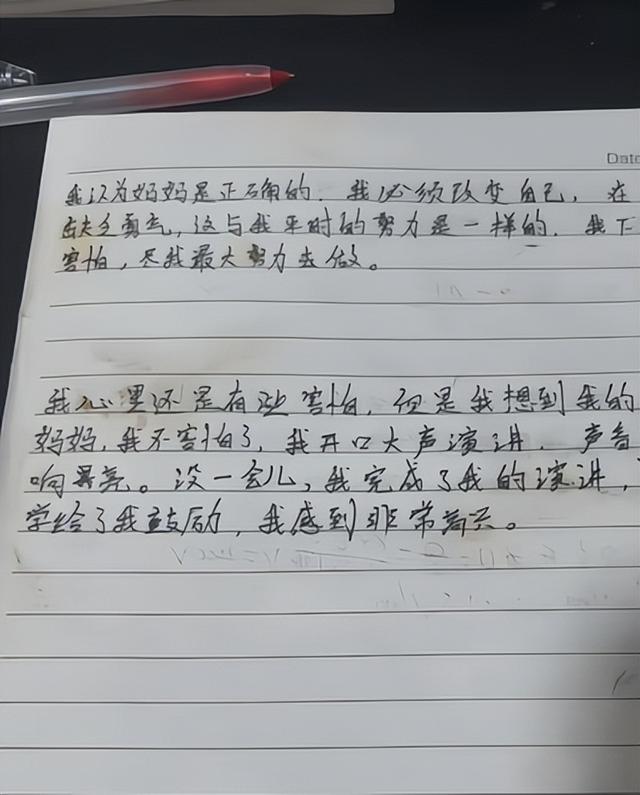 Date
我认为妈妈是正确的. 我必须改变自己, 在
缺乏勇气, 这与我平时的努力是一样的. 我下
害怕, 尽我最大努力去做。
我心里还是有些害怕, 但是我想到我的
妈妈, 我不害怕了, 我开口大声演讲. 声音
响亮。没一会儿, 我完成了我的演讲,
学给了我鼓励, 我感到非常高兴。